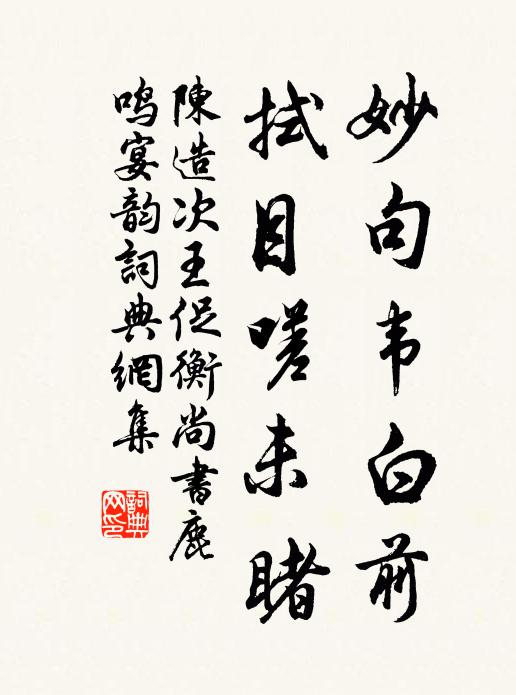 妙句韦白前
拭目嗟未睹
陳造次王促衡尚書鹿
鸣宴韵詞典網集
詞典网印